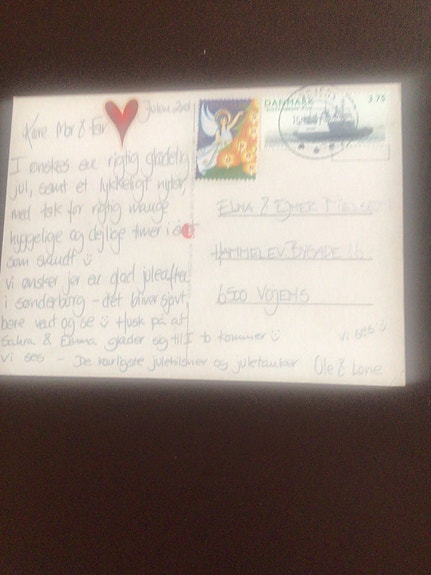 Julen
Kære Mor & Far
I ønskes en rigtig glædelig
jul, samt et lykkeligt nytår,
med tak for rigtig mange
hyggelige og dejlige timer i
som sendt
vi ønsker jer en glad juleaften
i sønderborg - det bliver sjovt,
bare vent og se Husk på at
& Emma glæder sig til I to kommer
vi ses - De kærligste julehilsner og juletanker
Ole & Lone
vi ses
DANMARK 3.75
ELNA & NIELSEN
HAMMELEV BYGADE
6500 VOJENS